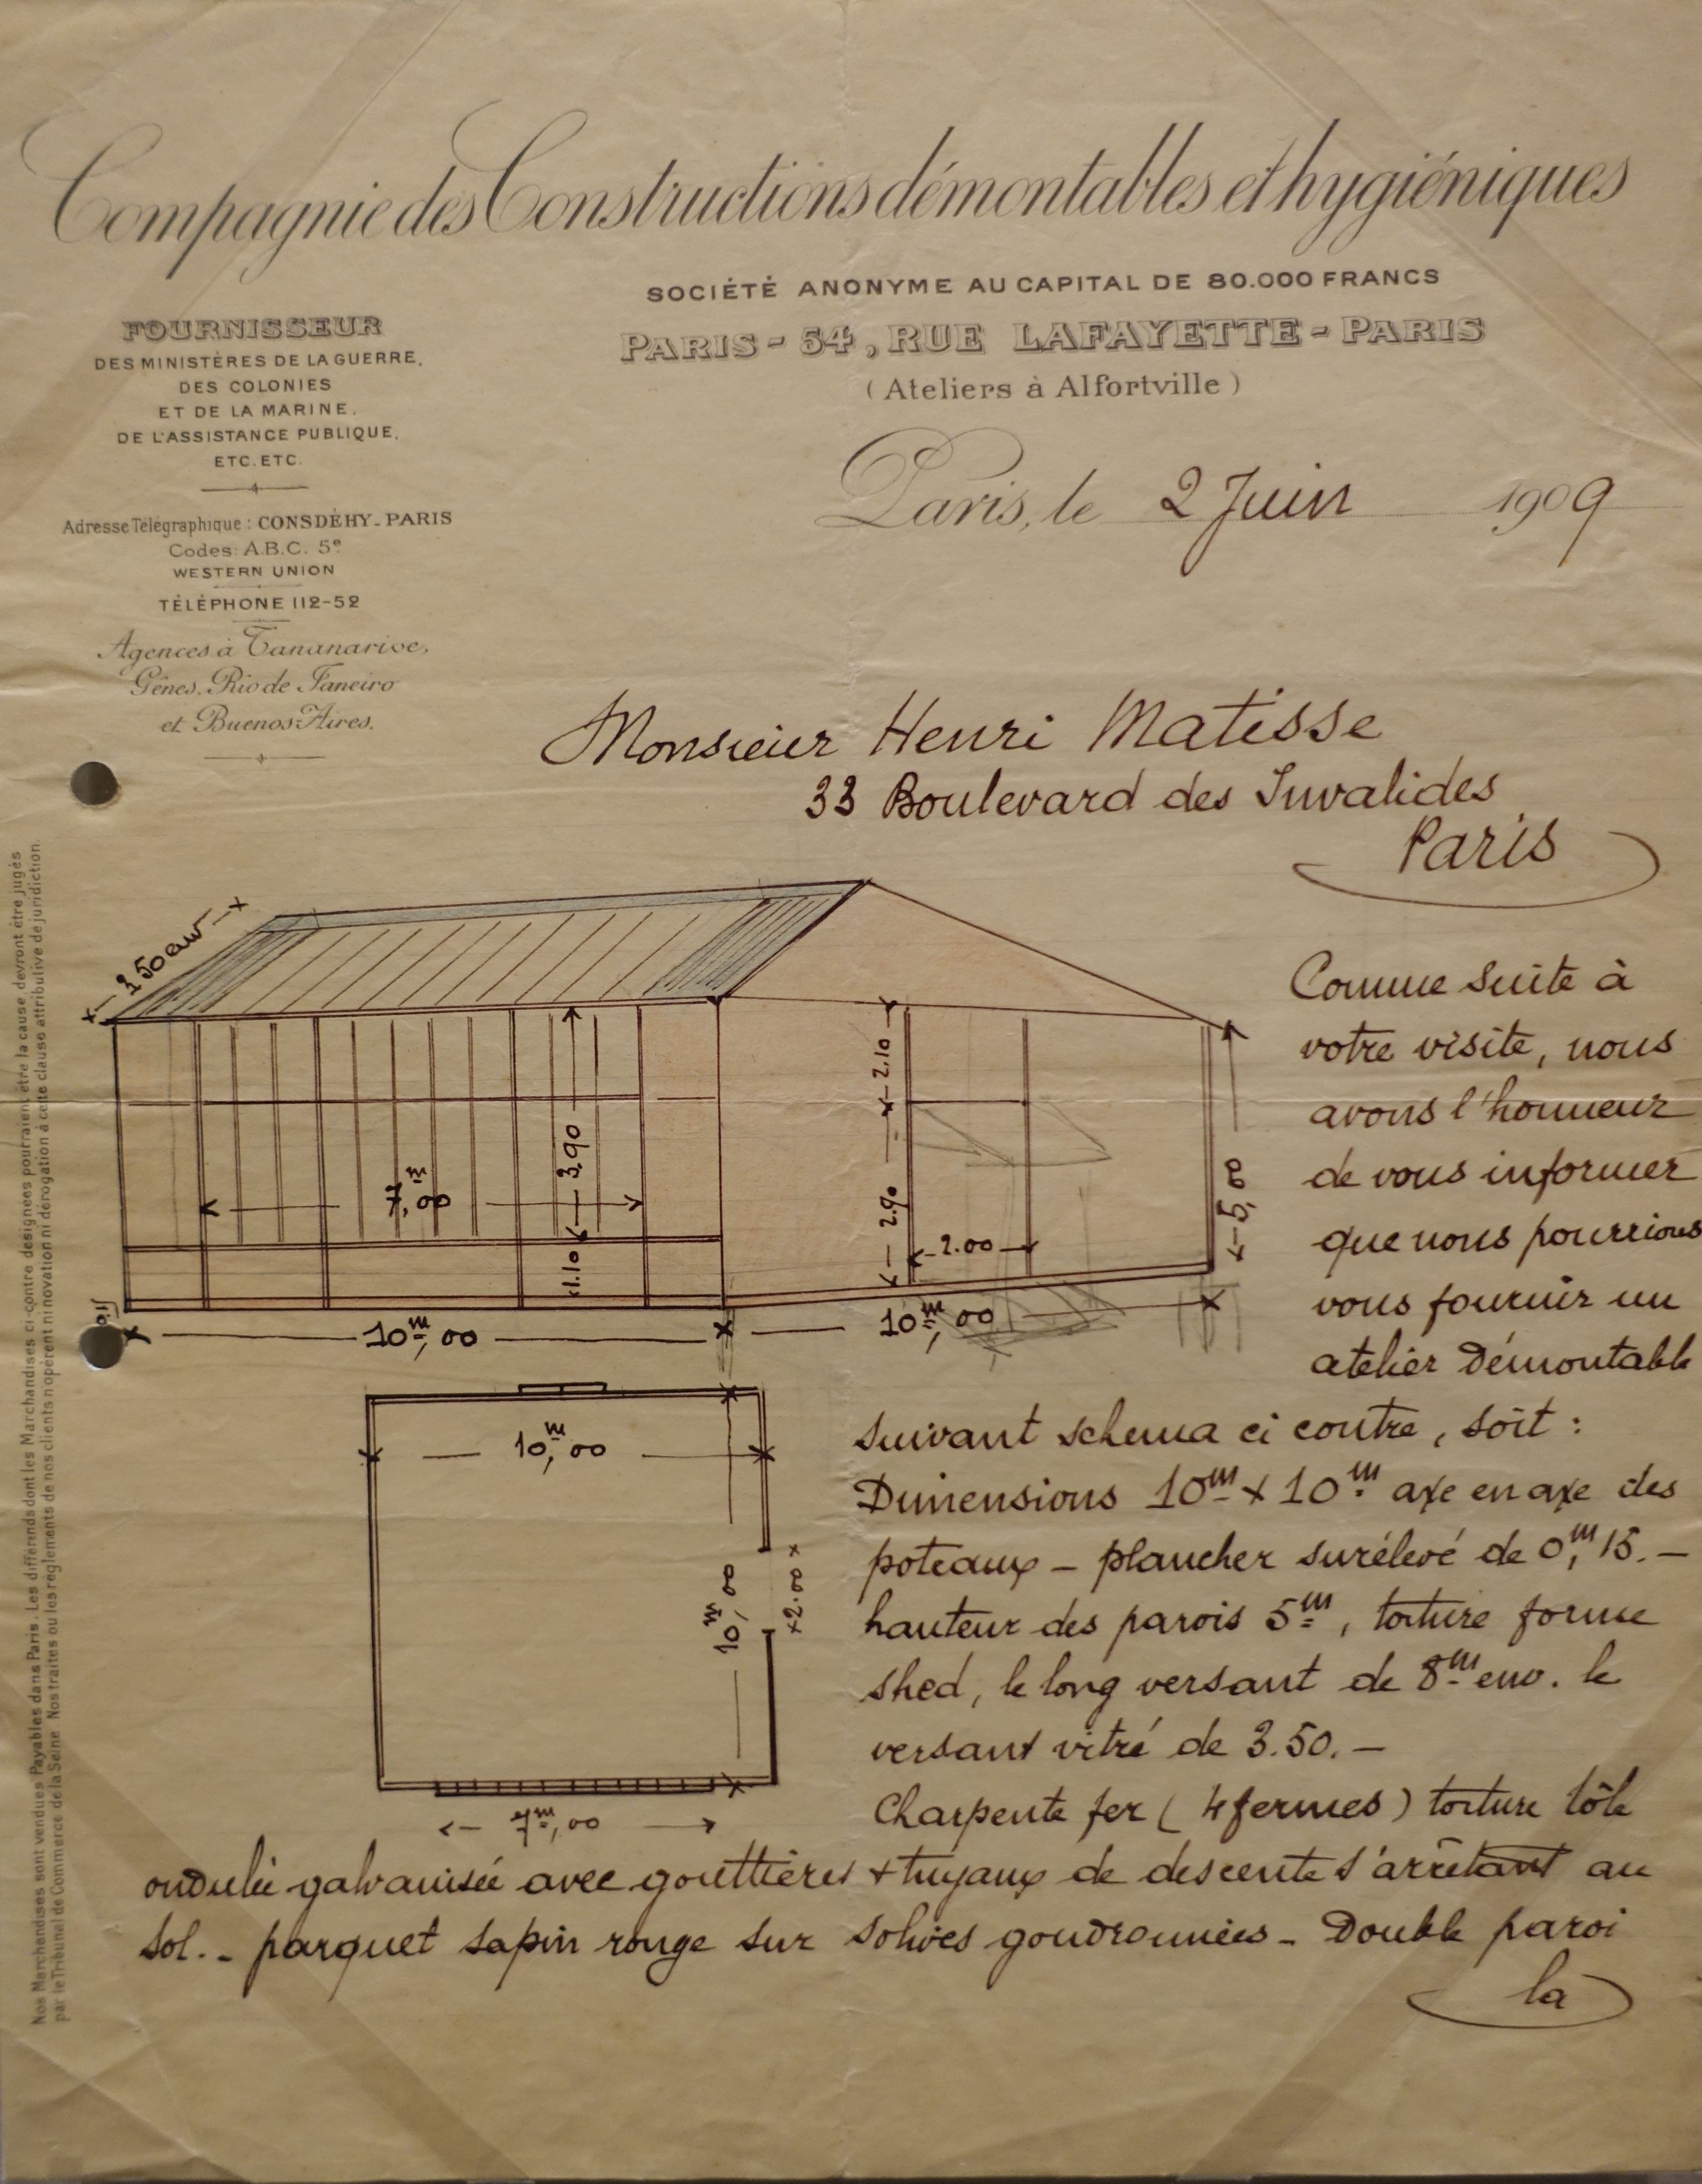 Compagnie des Constructions démontables et hygiéniques
SOCIÉTÉ ANONYME AU CAPITAL DE 80.000 FRANCS
PARIS - 54, RUE LAFAYETTE - PARIS
(Ateliers à Alfortville)
FOURNISSEUR
DES MINISTÈRES DE LA GUERRE,
DES COLONIES
ET DE LA MARINE,
DE L'ASSISTANCE PUBLIQUE,
ETC. ETC.
Adresse Télégraphique : CONSDÉHY_PARIS
Codes: A.B.C. 5e
WESTERN UNION
TÉLÉPHONE 112-52
Agences à Tananarive,
Gênes, Rio de Janeiro
et Buenos Aires.
Paris, le 2 Juin 1909
Monsieur Henri Matisse
33 Boulevard des Invalides
Paris
3.50 env
2.10
3.90
7,m00
2.90
5,00
2.00
1.10
10m,00
10m,00
Comme suite à
votre visite, nous
avons l'honneur
de vous informer
que nous pourrions
vous fournir un
atelier Démontable
10,m00
10m,00
2.00
7m,00
suivant schema ci contre, soit :
Dimensions 10m x 10m axe en axe des
poteaux – plancher surélevé de 0,m15. –
hauteur des parois 5m, toiture forme
shed, le long versant de 8m env. le
versant vitré de 3.50. –
Charpente fer ( 4 fermes ) toiture tôle
ondulée galvanisée avec gouttières + tuyaux de descente s'arrêtant au
sol. - parquet sapin rouge sur solives goudronnées - Double paroi
la
Nos Marchandises sont vendues Payables dans Paris. Les différends dont les Marchandises ci-contre désignées pourraient être la cause devront être jugés
par le Tribunal de Commerce de la Seine Nos traites ou les règlements de nos clients n'opèrent ni novation ni dérogation à cette clause attributive de juridiction.